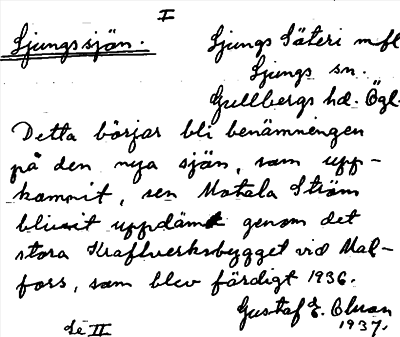 I
Ljungssjön. Ljungs Säteri m fl
Ljungs sn.
Gullbergs hd. Ögl.
Detta börjar bli benämningen
på den nya sjön, som upp-
kommit, sen Motala Ström
blivit uppdämt genom det
stora Kraftverksbygget vid Mal-
fors, som blev färdigt 1936.
Gustaf E. Olsson
1937.
Se II